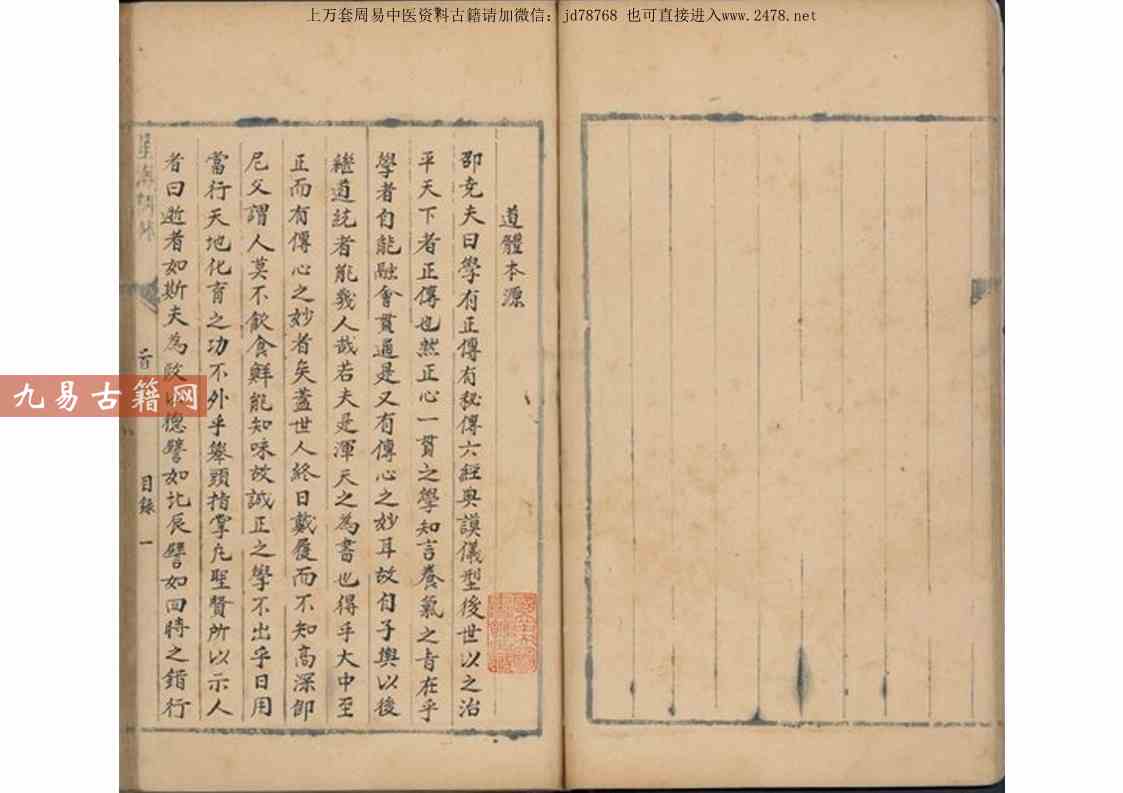 上万套周易中医资料古籍请加微信：jd78768 也可直接进入www.2478.net
道體本源
邵堯夫曰學有正傳有秘傳六經典謨儀型後世以之治
平天下者正傳也然正心一貫之學知言養氣之旨在乎
學者自能融會貫通是又有傳心之妙耳故自子輿以後
繼道統者能幾人哉若夫是渾天之為書也得乎大中至
正而有傳心之妙者矣蓋世人終日戴履而不知高深卽
尼父謂人莫不飲食鮮能知味故誠正之學不出乎日用
當行天地化育之功不外乎舉頭指掌凡聖賢所以示人
者曰逝者如斯夫為政以德譬如北辰譬如四時之錯行
目錄 一
九易古籍网